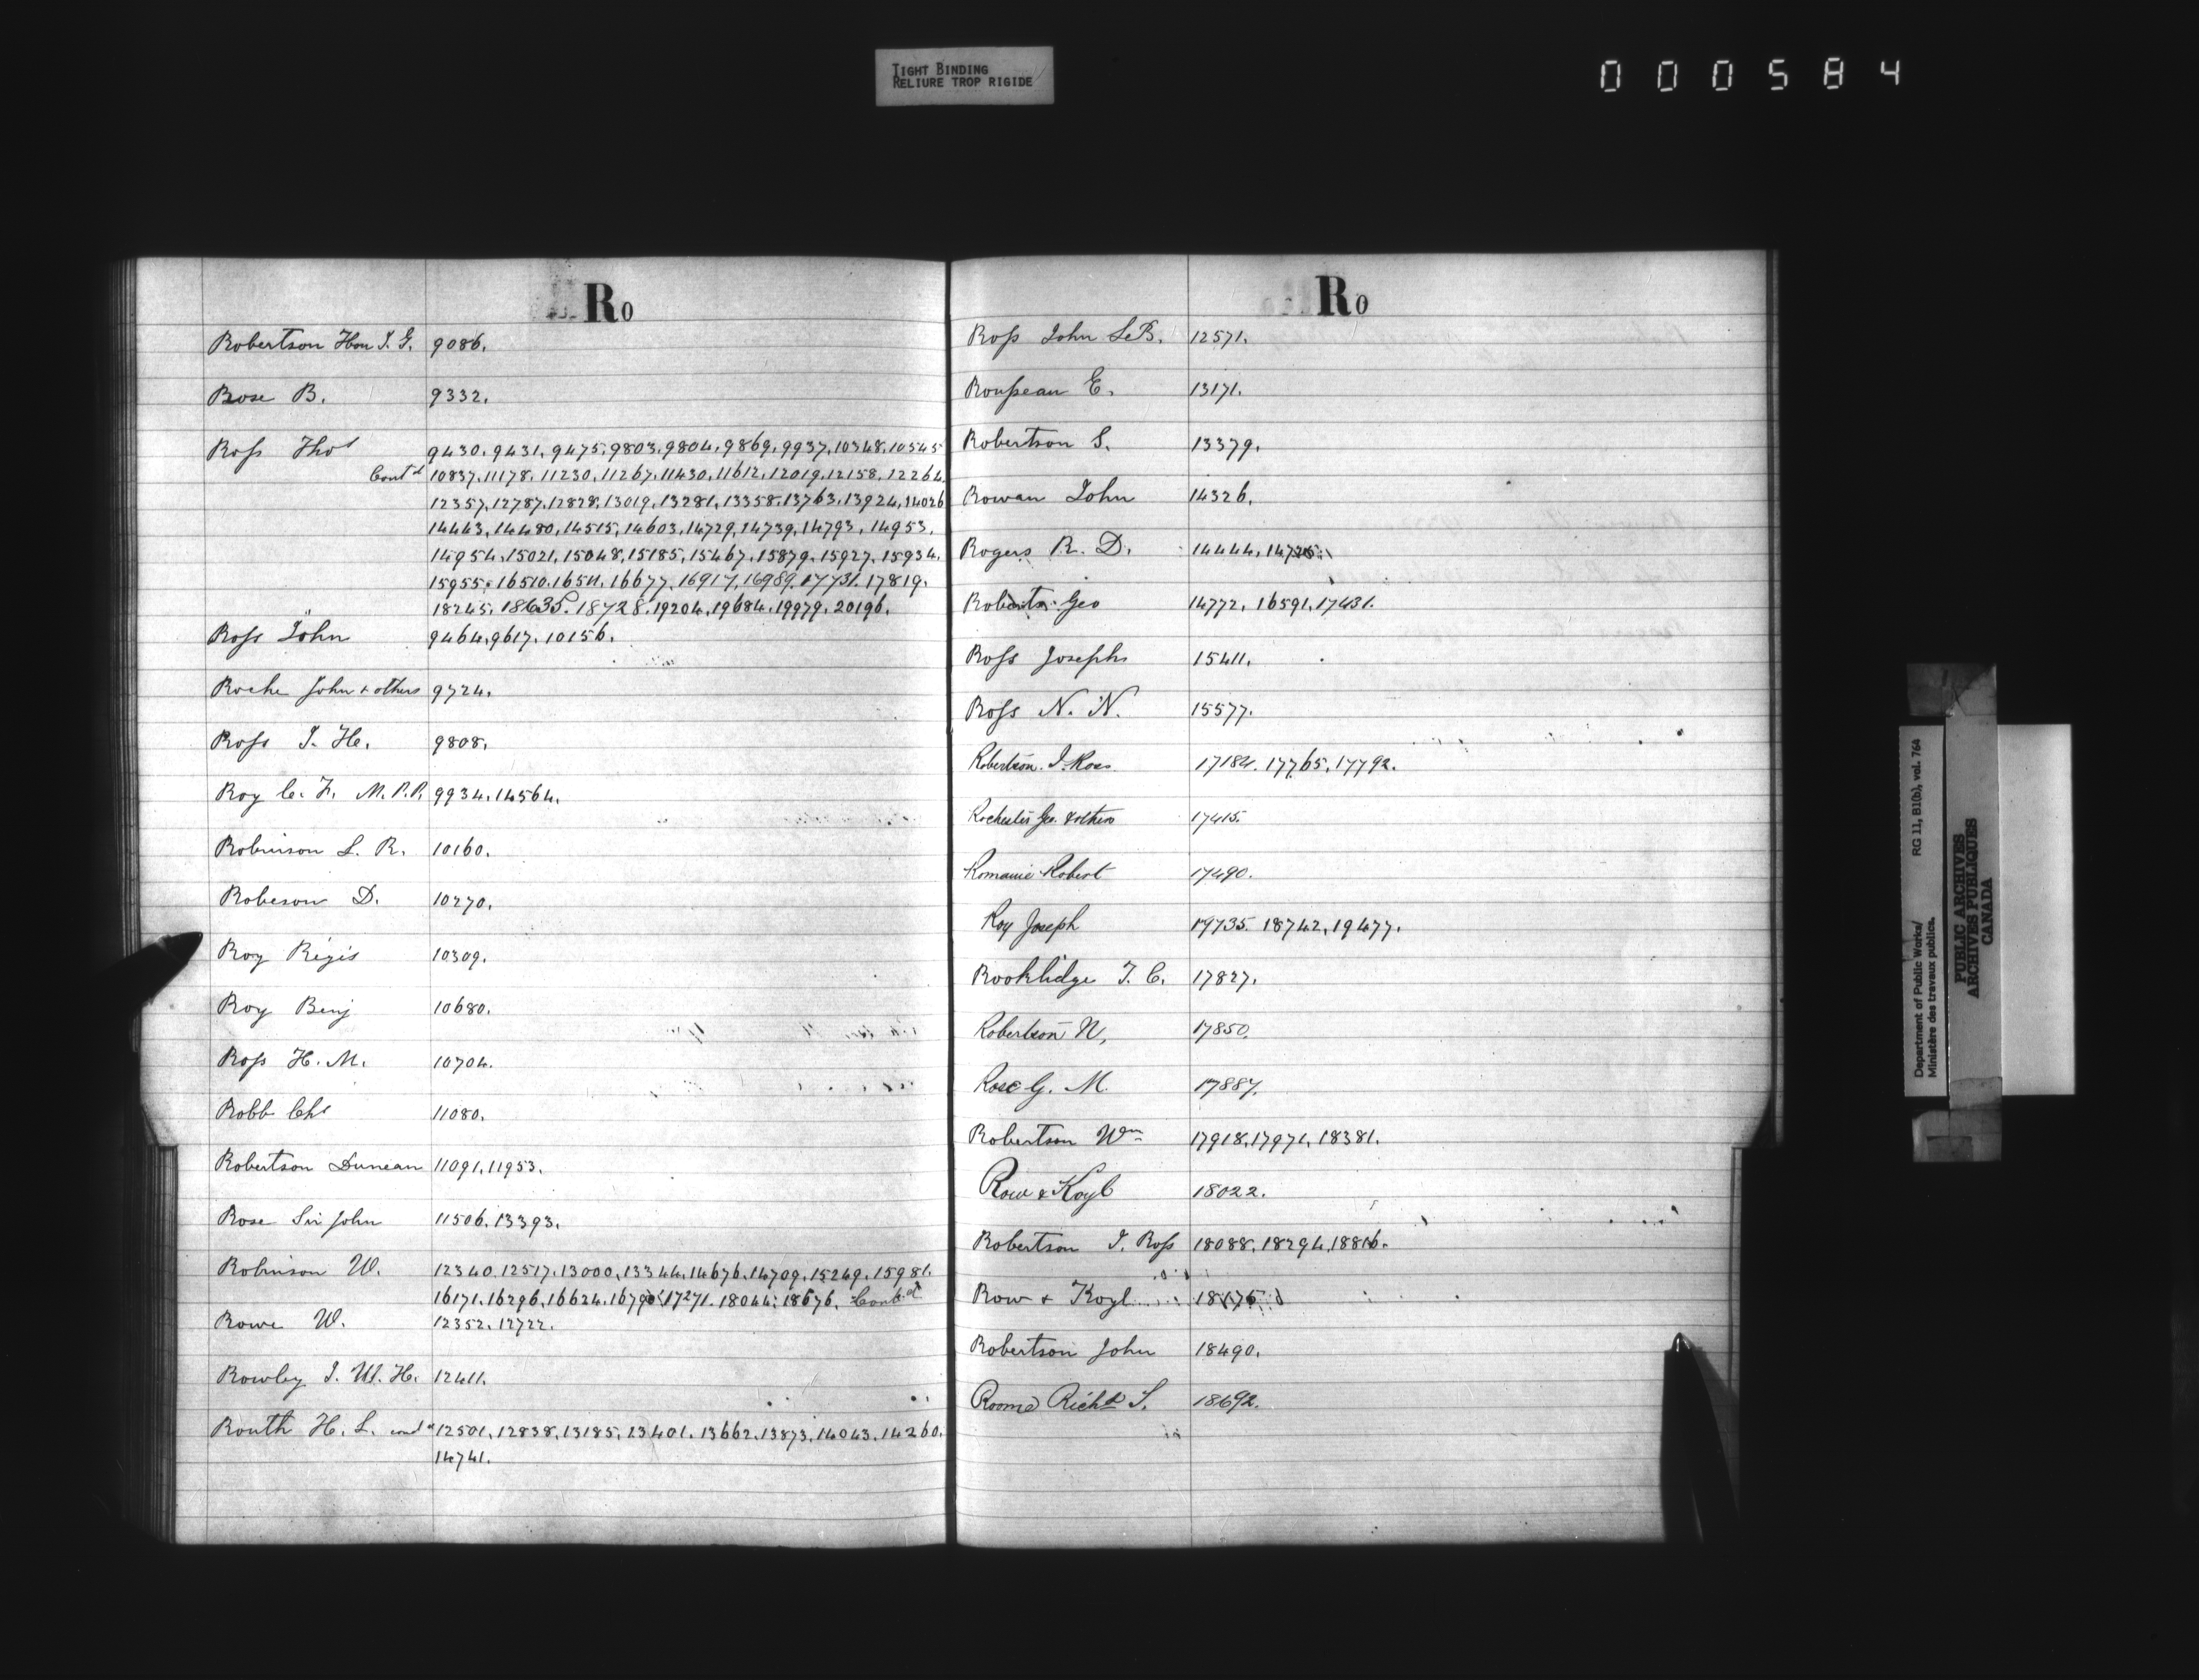 TIGHT BINDING
RELIURE TROP RIGIDE
000584
Ro
Robertson Hon J. G. 9086.
Rose B. 9332.
Ross Thos 9430. 9431. 9475. 9803. 9804. 9869. 9937. 10348. 10545
Contd 10837. 11178. 11230. 11267. 11430. 11612. 12019. 12158. 12264.
12357. 12787. 12828. 13019. 13281. 13358. 13763. 13924. 14026
14443. 14480. 14515. 14603. 14729. 14739. 14793. 14953.
14954. 15021. 15048. 15185. 15467. 15879. 15927. 15934.
15955. 16510. 16511. 16677. 16917. 16989. 17731. 17819.
18245. 18635. 18728. 19204. 19684. 19979. 20196.
Ross John 9464. 9617. 10156.
Roche John & others 9724.
Ross J. H. 9808.
Roy C. F. M.P.P. 9934. 14564.
Robinson L. R. 10160.
Robeson D. 10270.
Roy Régis 10309.
Roy Benj 10680.
Ross H. M. 10704.
Robb Chs 11080.
Robertson Duncan 11091. 11953.
Rose Sir John 11506. 13393.
Robinson W. 12340. 12517. 13000. 13344. 14676. 14709. 15249. 15981.
16171. 16296. 16624. 17271. 18044. 18676. Contd
Rowe W. 12352. 12722.
Rowley J. W. H. 12411.
Routh H. L. 12501. 12838. 13185. 13401. 13662. 13873. 14043. 14260.
14741.
Ro
Ross John LeB. 12571.
Rousseau E. 13171.
Robertson S. 13379.
Rowan John 14326.
Rogers R. D. 14444.
Roberts Geo 14772. 16591. 17431.
Ross Joseph 15411.
Ross N. N. 15577.
Robertson J. Ross 17184. 17765. 17792.
Rochester Geo. & others 17415.
Romanie Robert 17490.
Roy Joseph 19735. 18742. 19477.
Rooklidge T. C. 17827.
Robertson N, 17850.
Rose G. M. 17887.
Robertson Wm 17918. 17971. 18381.
Row & Koyl 18022.
Robertson J. Ross 18088. 18294. 18816.
Row & Koyl
Robertson John 18490.
Roome Richd S. 18692.
Department of Public Works/
Ministère des travaux publics.
RG 11, B1(b), vol. 764
PUBLIC ARCHIVES
ARCHIVES PUBLIQUES
CANADA